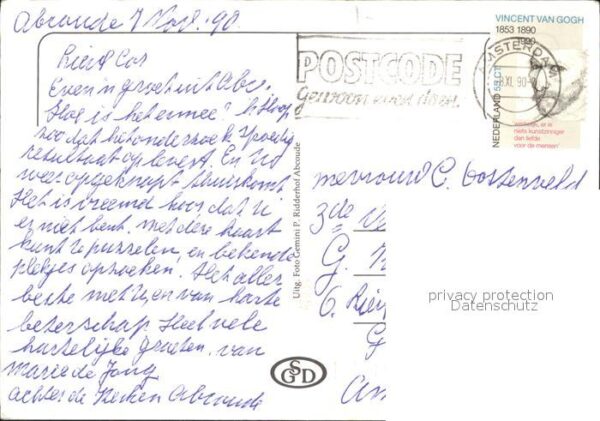 Abcoude 7 Nov. 90.
Lieve Cor
Even n groet uit Abc.
Hoe is het ermee? Ik hoop
zoo dat het onderzoek spoedig
resultaat oplevert. En U
weer opgeknapt thuiskomt
Het is vreemd hoor dat U
er niet bent. Met deze kaart
kunt U puzzelen, en bekende
plekjes opzoeken. Het aller
beste met U, en van harte
beterschap. Heel vele
hartelijke groeten. van
Marie de Jong
achter de Kerken Abcoude
Uitg. Foto Gemini P. Ridderhof Abcoude
SGD
POSTCODE
gewoon even doen.
AMSTERDA
XI. 90
VINCENT VAN GOGH
1853 1890
1990
NEDERLAND 55 CT
werkelijk, er is
niets kunstzinniger
dan liefde
voor de mensen'
mevrouw C. Oostenveld
3de
G.
6.
G
Am
privacy protection
Datenschutz